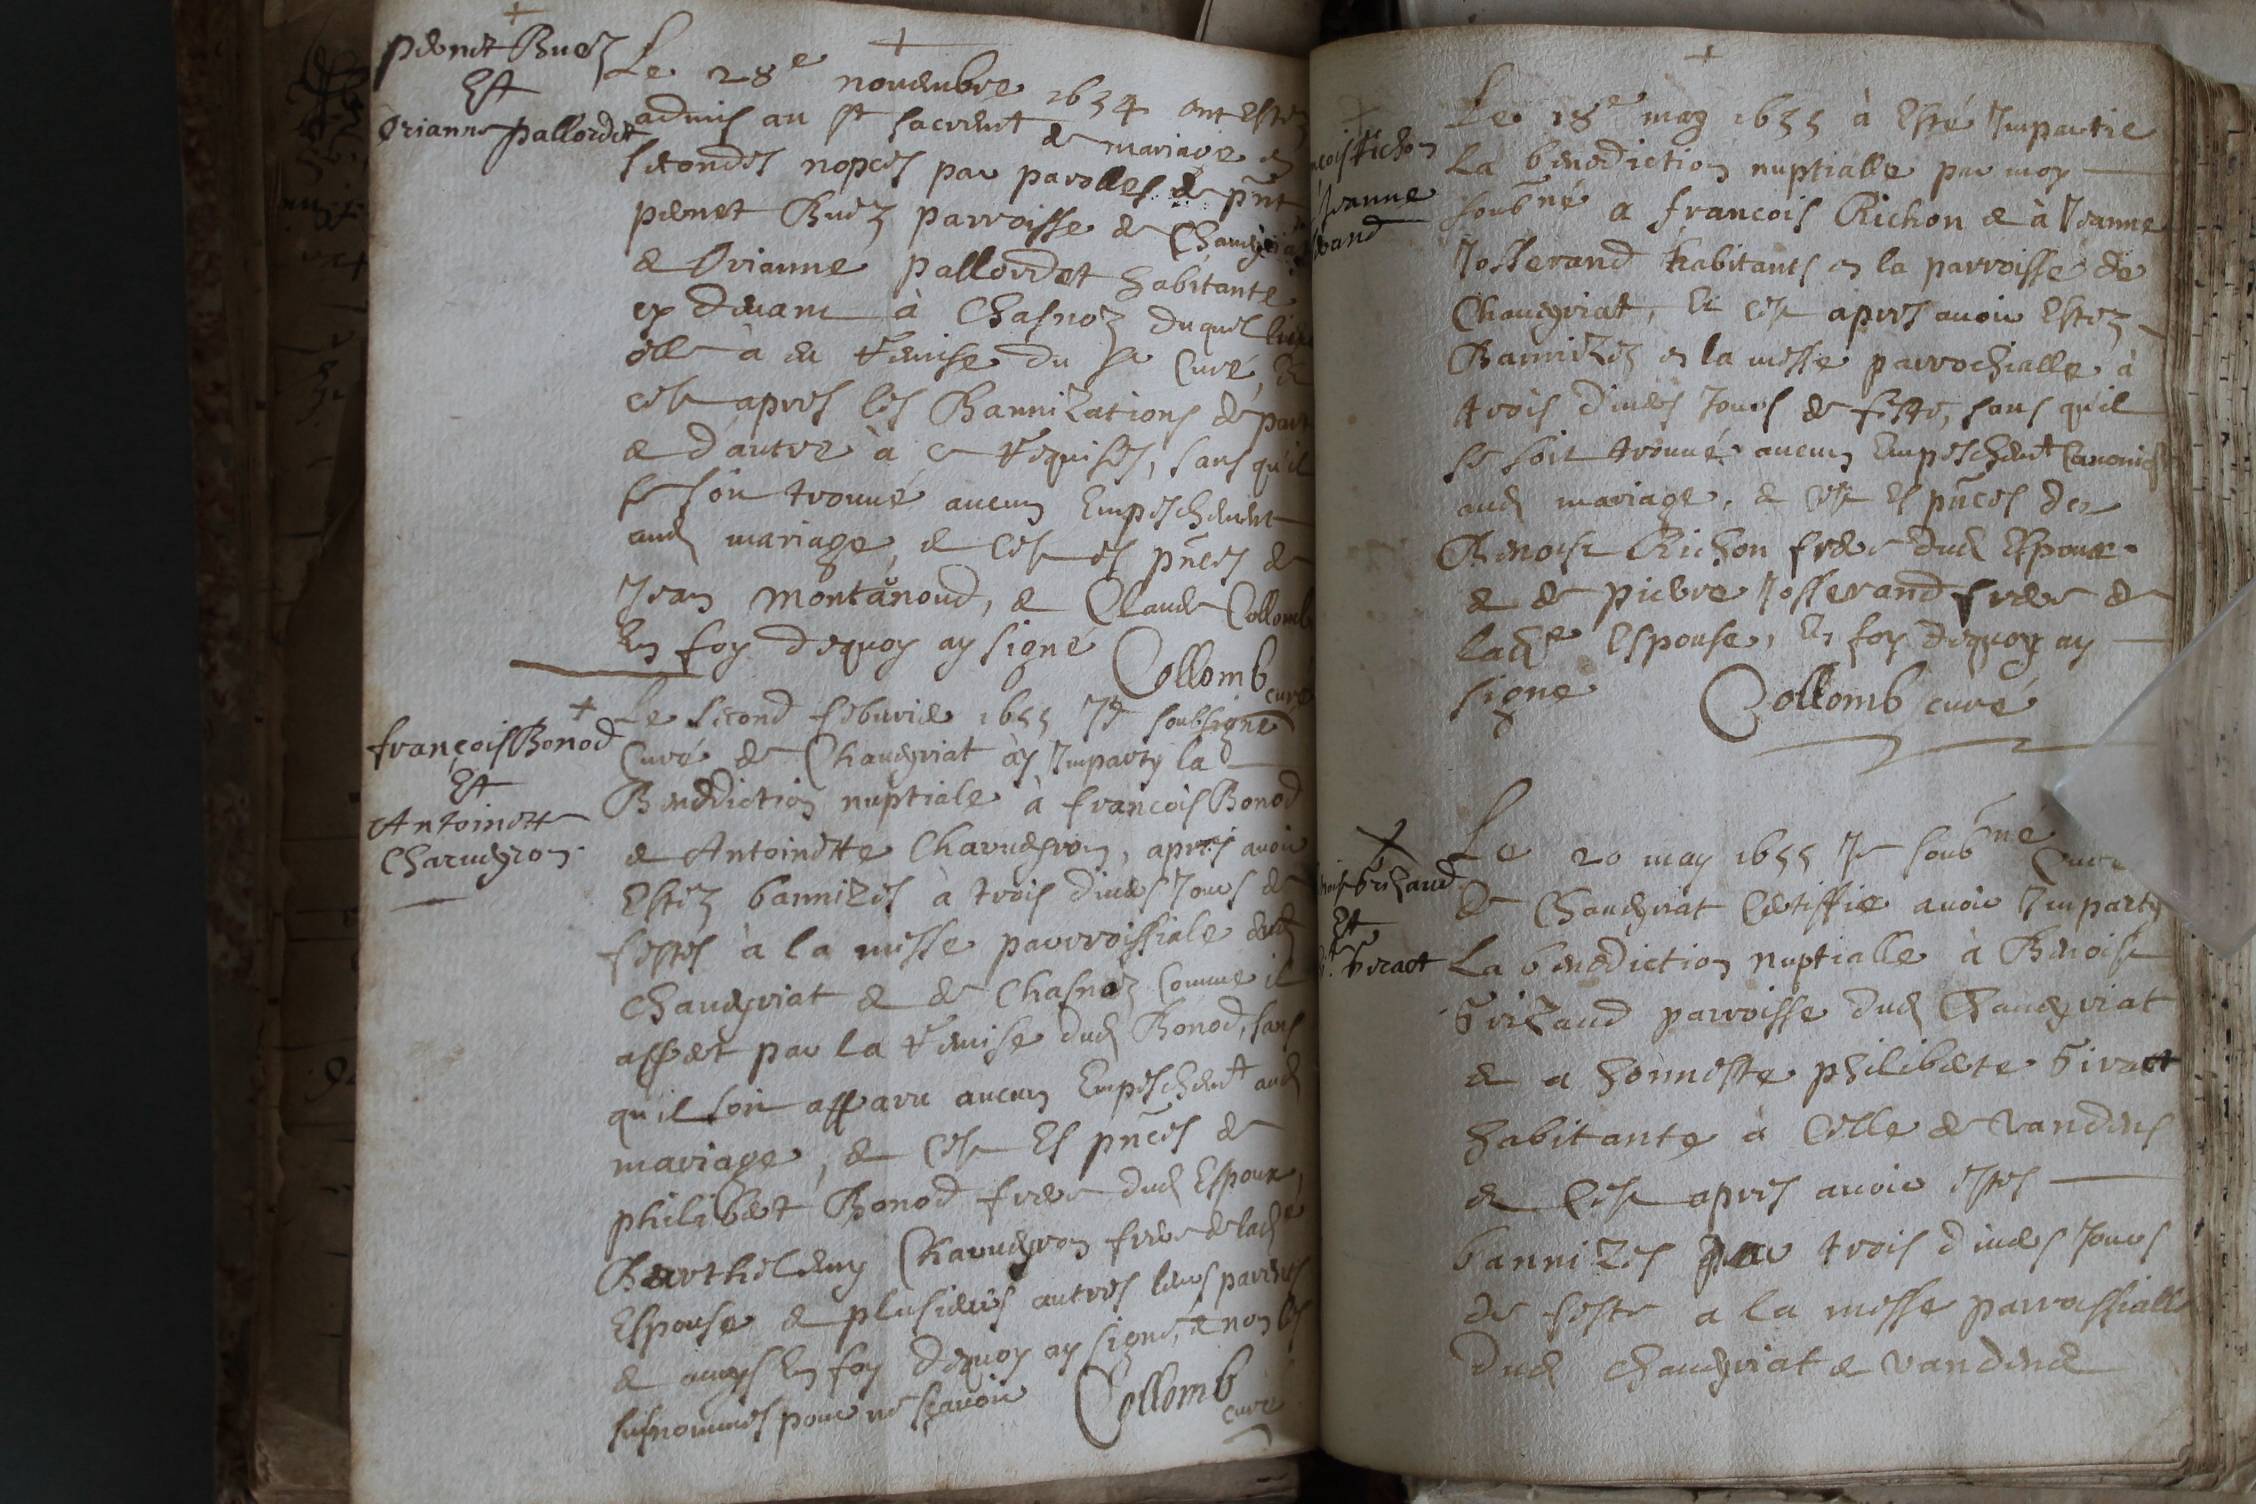 pernet Buez
Et
Orianne pallordet
Le 28e nouembre 1654 ont estez
admis au st sacremt de mariage en
secondes nopces par parolles de pñt
pernet Buez parroisse de Chaueyriat
& Orianne pallordet habitante
cy deuant à Chasnoz duquel lieu
elle à eu remise du sr Curé, &
cest apres les Bannizations de part
& d'autre à ce requises, sans qu'il
se soit trouué aucun Empeschement
aud mariage, & cest es pñces de
Jean montanoud, & Claude Collomb
En foy dequoy ay signé
Collomb curé
françois Bonod
Et
Antoinette
Charueyron
Le second feburier 1655 Je soubsigné
Curé de Chaueyriat ay Imparty la
Benediction nuptiale à francois Bonod
& Antoinette Charueyron, apres auoir
Estez bannizes à trois diuers Jours de
festes à la messe parroissiale dud
Chaueyriat & de Chasnoz Comme il
appert par la remise dud Bonod, sans
qu'il soit apparu aucun Empeschemt aud
mariage, & Cest Es pñces de
philibert Bonod frere dud Espoux,
Barthelemy Charueyron frere de lade
Espouse & plusieurs autres leurs parents
& amys En foy dequoy ay signé, & non les
susnommes pour ne sçauoir
Collomb
curé
françois Richon
Jeanne
Josserand
Le 18e may 1655 à Esté Impartie
La benediction nuptialle par moy
soubné a francois Richon & à Jeanne
Josserand habitants en la parroisse de
Chaueyriat, Et cest apres auoir Estez
Bannizez en la messe parrochialle à
trois diuers Jours de feste, sans qu'il
se soit trouué aucun Empeschemt Canoniq
aud mariage, & cest Es pñces de
Benoist Richon frere dud Espoux
& de pierre Josserand frere de
lade Espouse, En foy dequoy ay
signe
Collomb curé
Benoist Grizaud
Et
Giract
Le 20 may 1655 Je soubné Curé
de Chaueyriat Certiffie auoir Imparty
La benediction nuptialle à Benoist
Grizaud parroisse dud Chaueyriat
& a honneste philiberte Giract
habitante à Celle de Vandeins
& Cest apres auoir estes
bannizes par trois diuers Jours
de feste a la messe parroissialle
dud Chaueyriat & vandeins